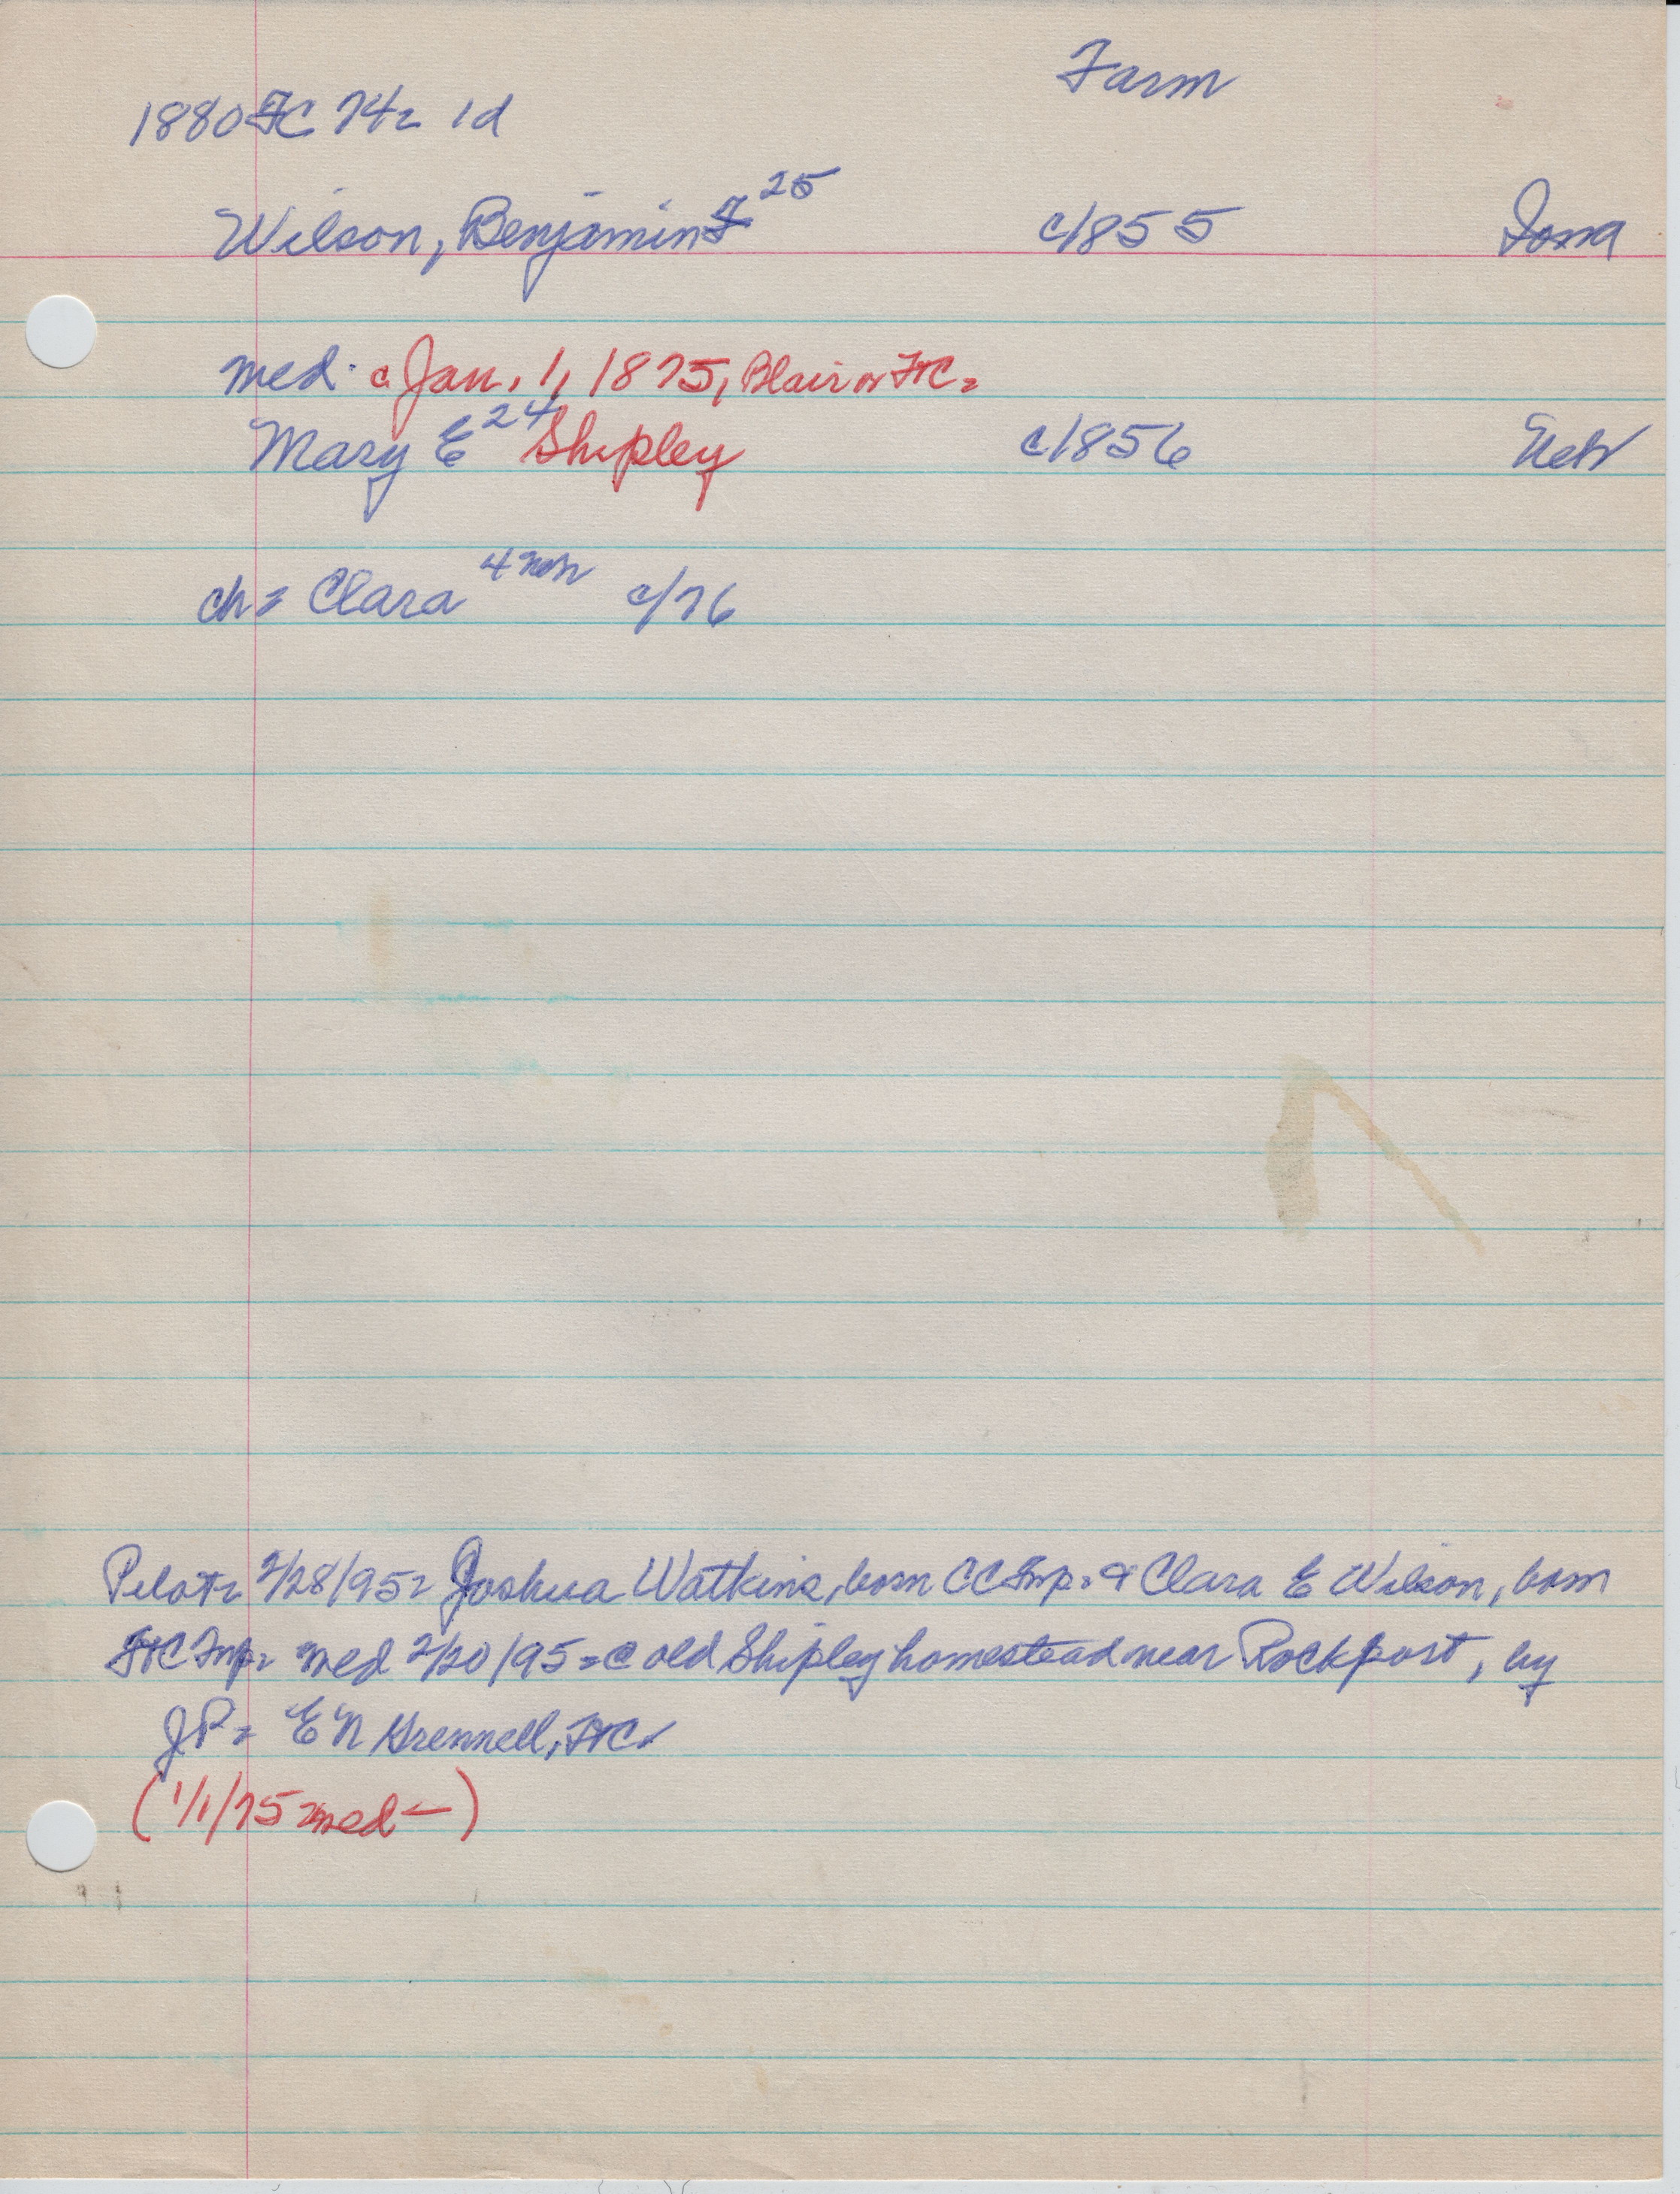 Farm
1880 FC 742 1d
Wilson, Benjamin F 25 c/855 Iowa
med. c Jan. 1, 1875, Blair or FtC =
Mary E 24 Shipley c/856 Neb
ch = Clara 4 c/76
Pilot = 2/28/95 = Joshua Watkins, born CC Twp. & Clara E Wilson, born
FtC Twp. med 2/20/95 = @ old Shipley homestead near Rockport, by
JP = E N Grennell, FtC
(1/1/75 med –)